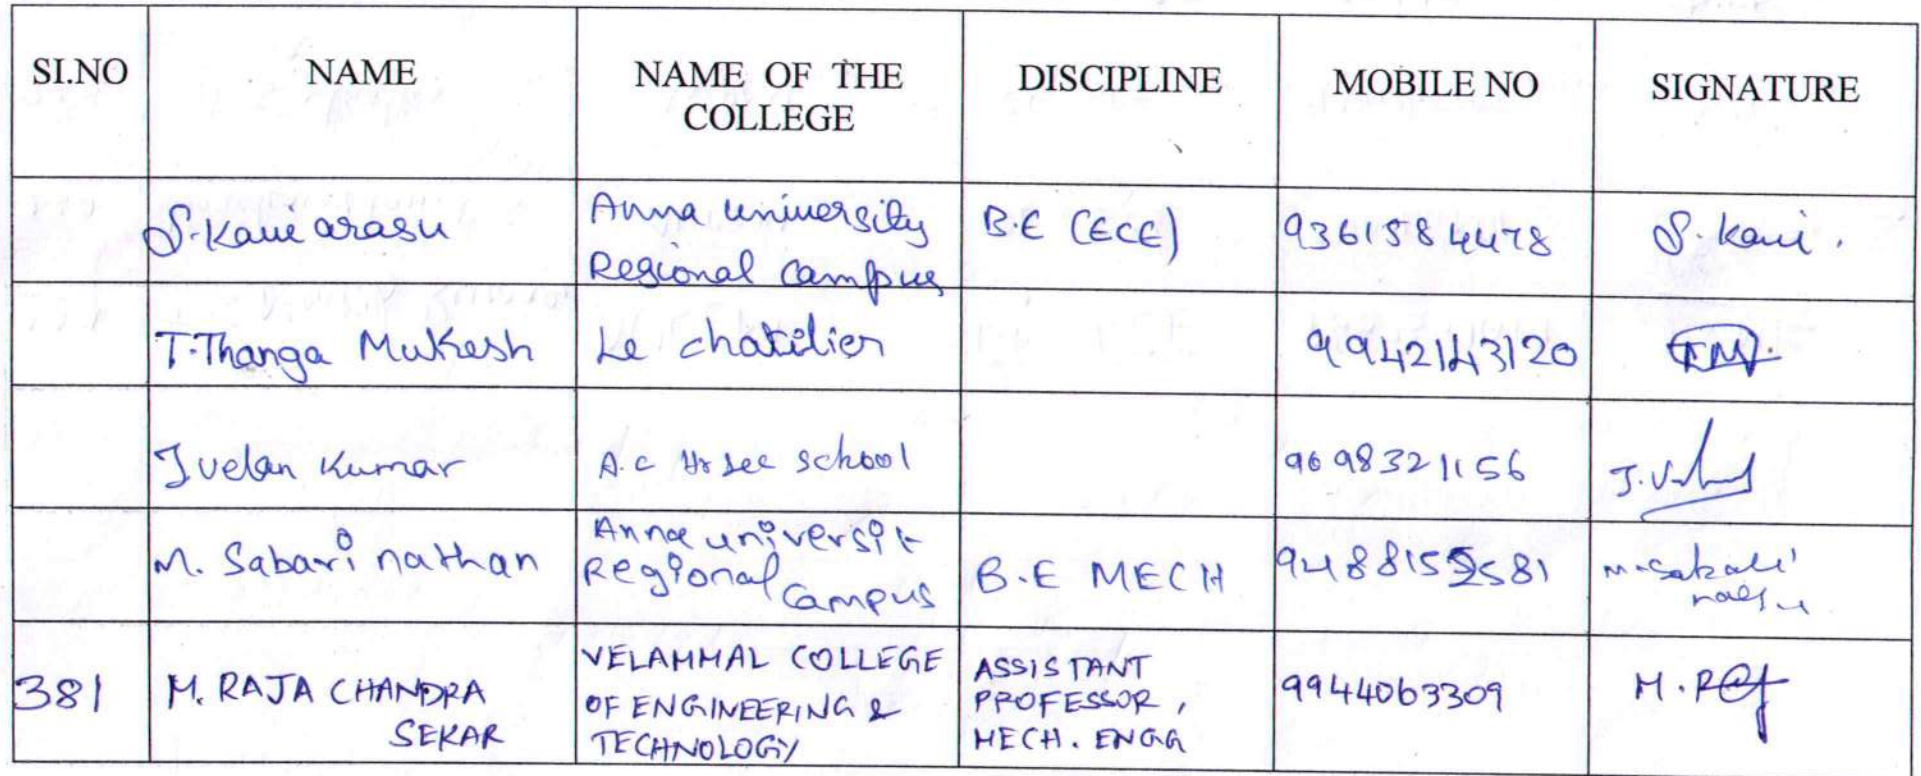 SI.NO NAME NAME OF THE COLLEGE DISCIPLINE MOBILE NO SIGNATURE
S. Kavi arasu
Anna university
Regional campus
B.E (ECE)
9361584478
S. Kavi.
T. Thanga Mukesh
Le chatilier
9942143120
J velan Kumar
A.C Hr sec school
9698321156
M. Sabari nathan
Anna universit
Regional
campus
B.E MECH
M. RAJA CHANDRA
SEKAR
381
VELAMMAL COLLEGE
OF ENGINEERING &
TECHNOLOGY
ASSISTANT
PROFESSOR,
MECH. ENGG
9944063309